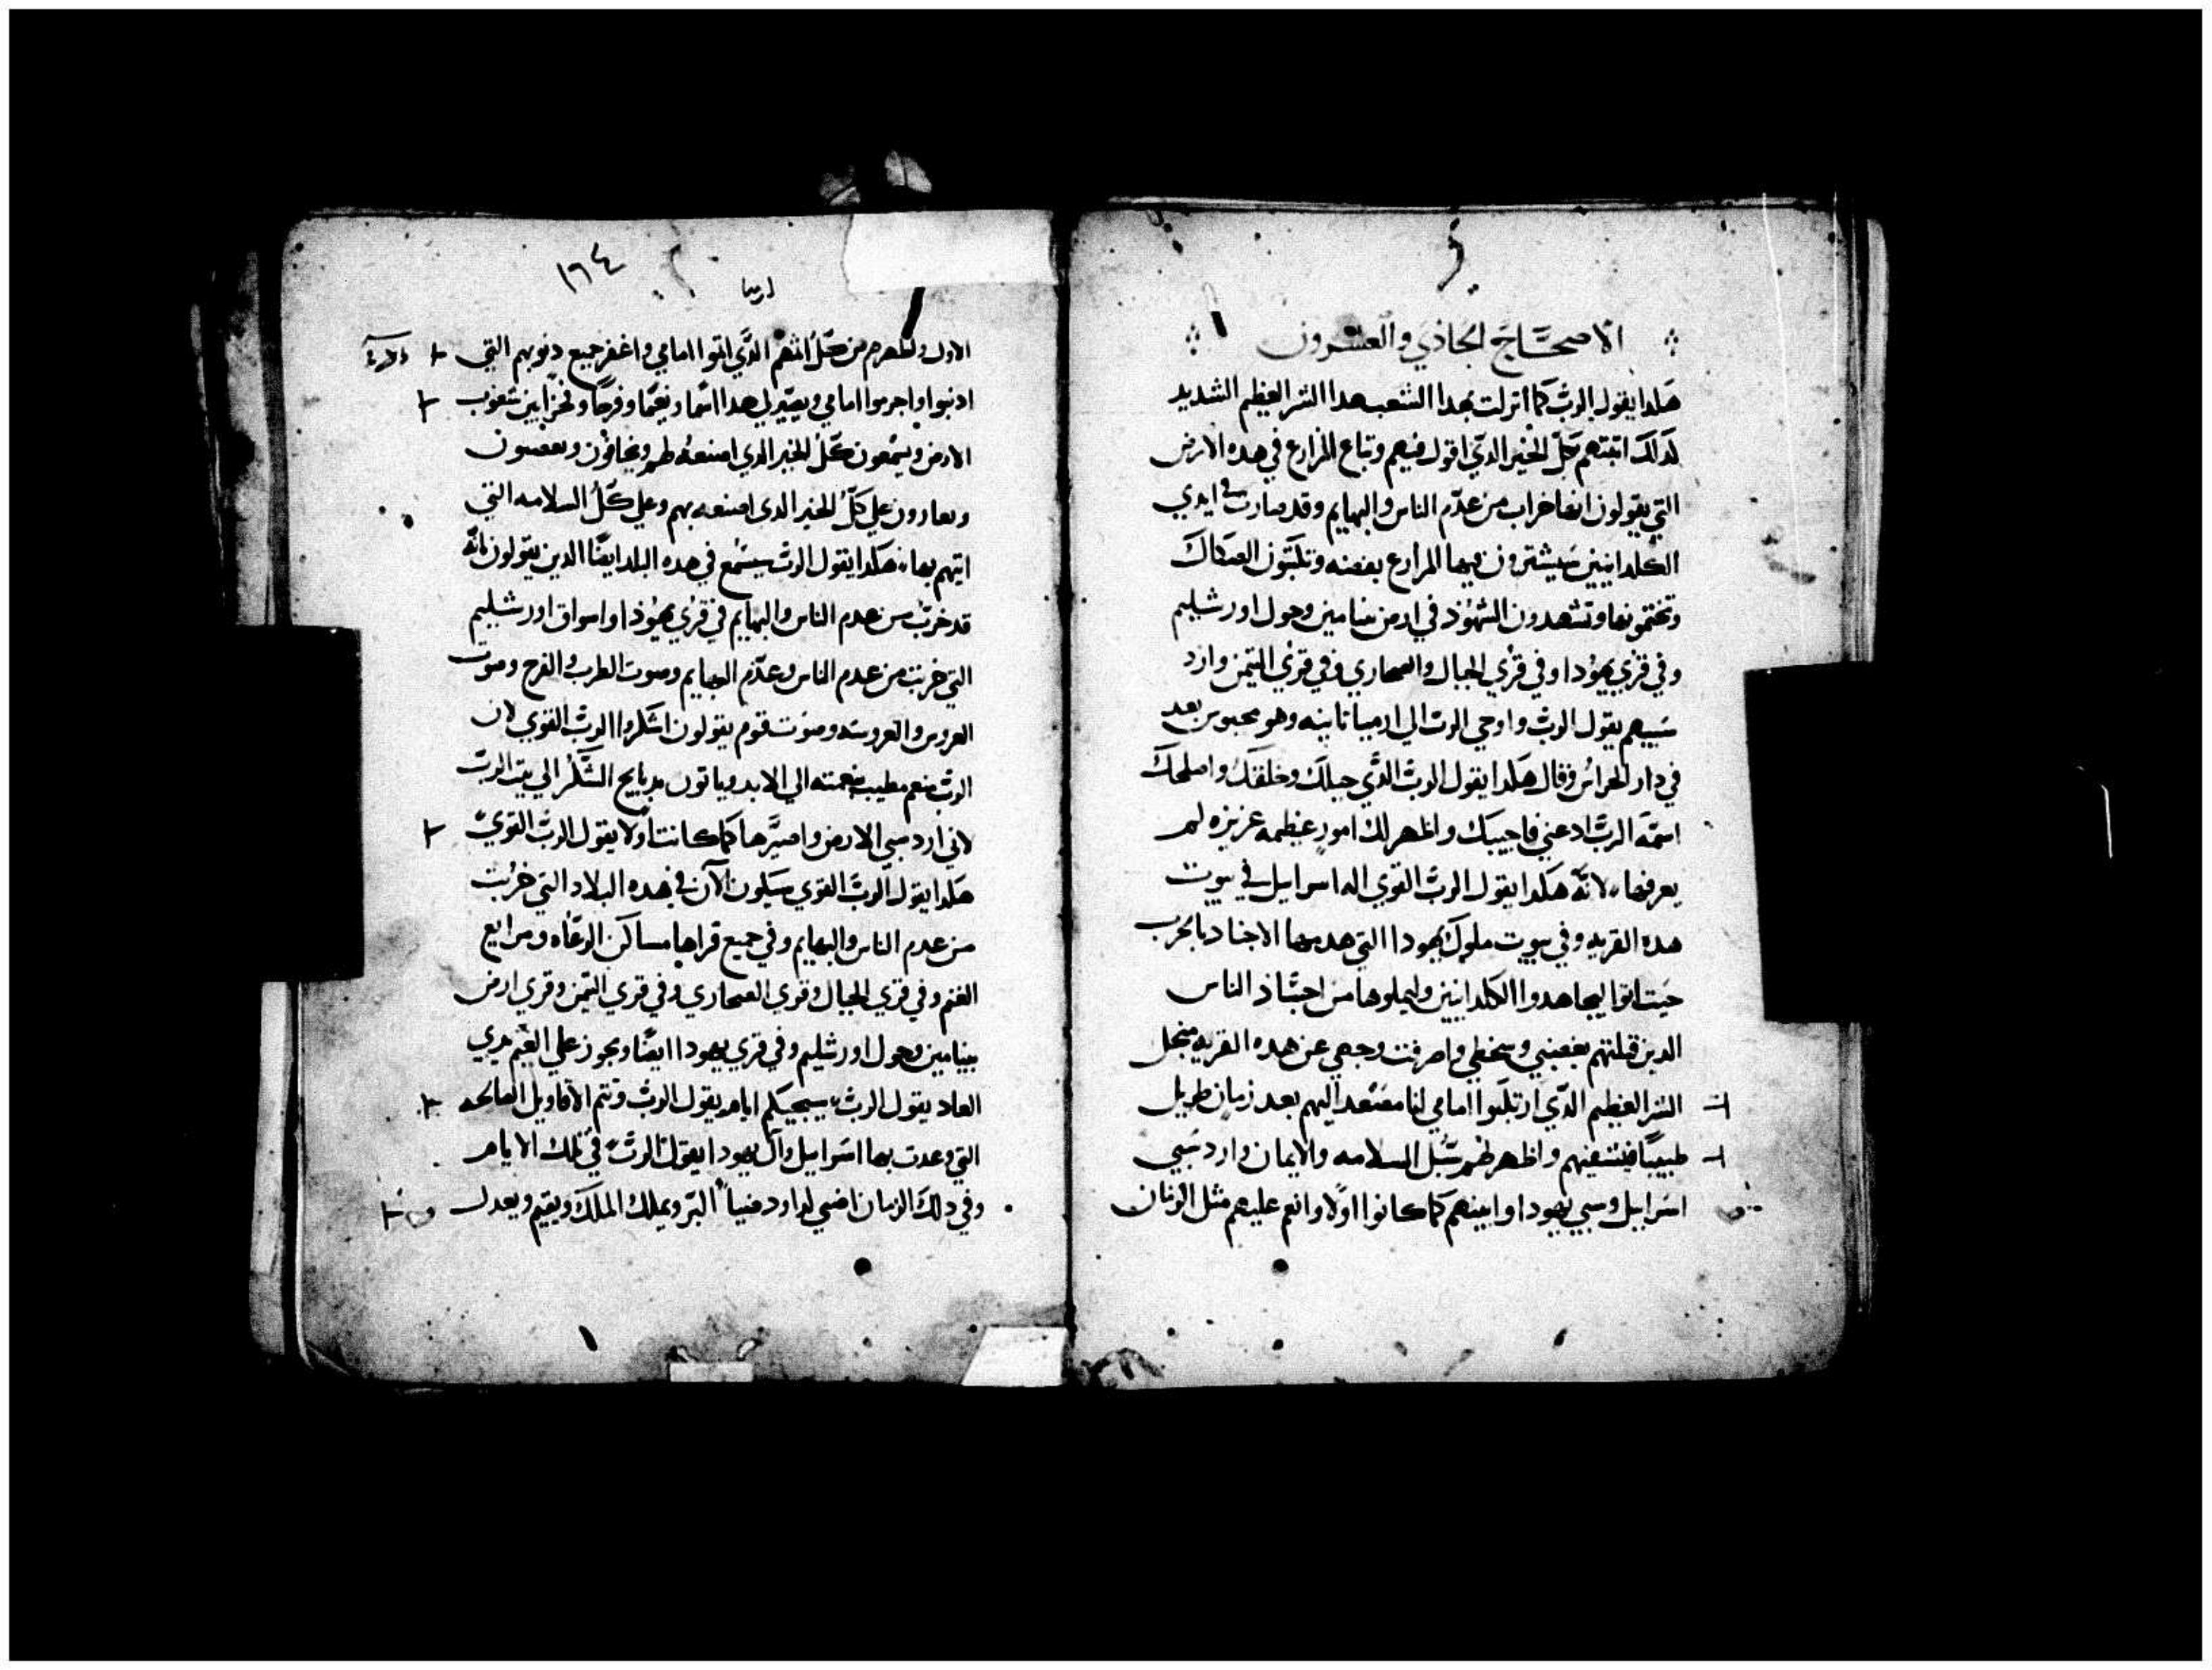 الاصحاح الحادي والعشرون
هكدا يقول الرب كما انزلت بهدا الشعب هدا الشر العظيم الشديد
كدلك اتيتهم بكل الخير الدي اقول فيهم وتباع المزارع في هده الارض
التي يقولون انها خراب من عدم الناس والبهايم وقد صارت في ايدي
الكلدانيين سيشترون فيها المزارع بفضه وتكتبون الصكاك
وتختمونها وتشهدون الشهود في ارض بنيامين وحول اورشليم
وفي قري يهودا وفي قري الجبال والصحاري وفي قري التيمن وارد
سبيهم يقول الرب واوحي الرب الي ارميا تانيه وهو محبوس بعد
في دار الحراس وقال هكدا يقول الرب الدي جبلك وخلقك واصلحك
اسمه الرب ادعني فاجيبك واظهر لك امور عظيمه عزيزه لم
يعرفها، لانه هكدا يقول الرب القوي اله اسراييل في بيوت
هده القريه وفي بيوت ملوك يهودا التي هدمها الاجناد بالحرب
حيت اتوا ليجاهدوا الكلدانيين وليملوها من اجساد الناس
الدين قتلتهم بغضبي وسخطي واصرفت وجهي عن هده القريه من اجل
الشر العظيم الدي ارتكبوا امامي انا مصعد اليهم بعد زمان طويل
طبيبا فيشفيهم واظهر لهم سبل السلامه والايمان وارد سبي
اسراييل وسبي يهودا وابنيهم كما كانوا اولا وانعم عليهم مثل الزمان
١٦٤
ارميا
الاول واطهرهم من كل اثمهم الدي اتوا امامي واغفر جميع دنوبهم التي
ادنبوا واجرموا امامي ويصير لي هدا اسما ونعما وفرحا وفخرا بين شعوب
الارض ويسمعون كل الخير الدي اصنعه لهم ويخافون ويغضبون
علي كل الخير الدي اصنعه بهم وعلي كل السلامه التي
اتيهم بها، هكدا يقول الرب سيسمع في هده البلد ايضا الدين يقولون بانه
قد خرب من عدم الناس والبهايم في قري يهودا واسواق اورشليم
التي خربت من عدم الناس وعدم البهايم وصوت الطرب والفرح وصوت
العروس والعروسه وصوت قوم يقولون اشكروا الرب القوي لان
الرب منعم مطيب نعمته الي الابد وياتون بدبايح الشكر الي بيت الرب
لاني ارد سبي الارض واصيرها كما كانت اولا يقول الرب القوي
هكدا يقول الرب القوي سيكون الان في هده البلاد التي خربت
من عدم الناس والبهايم وفي جميع قراها مساكن الرعاه ومرابع
الغنم وفي قري الجبال وقري الصحاري وفي قري التيمن وقري ارض
بنيامين وحول اورشليم وفي قري يهودا ايضا ويجوز علي الغنم يدي
العاد يقول الرب، سيجيكم ايام يقول الرب وتتم الاقاويل الصالحه
التي وعدت بها اسراييل وآل يهودا يقول الرب في تلك الايام
وفي دلك الزمان اضي لداود ضيا البر ويملك الملك ويقيم ويعدل